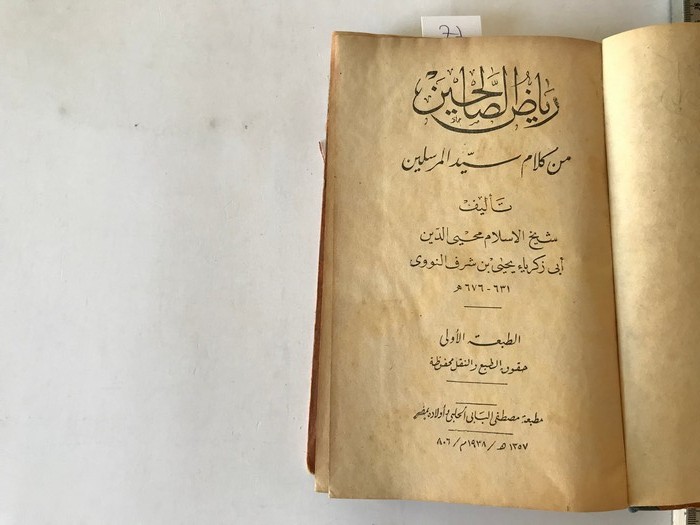 رياض الصالحين
من كلام سيّد المرسلين
تأليف
شيخ الاسلام محيي الدين
أبى زكرياء يحيى بن شرف النووى
٦٣١ - ٦٧٦ هـ
الطبعة الأولى
حقوق الطبع والنقل محفوظة
مطبعة مصطفى البابى الحلبى وأولاده بمصر
١٣٥٧ هـ / ١٩٣٨ م / ٨٠٦